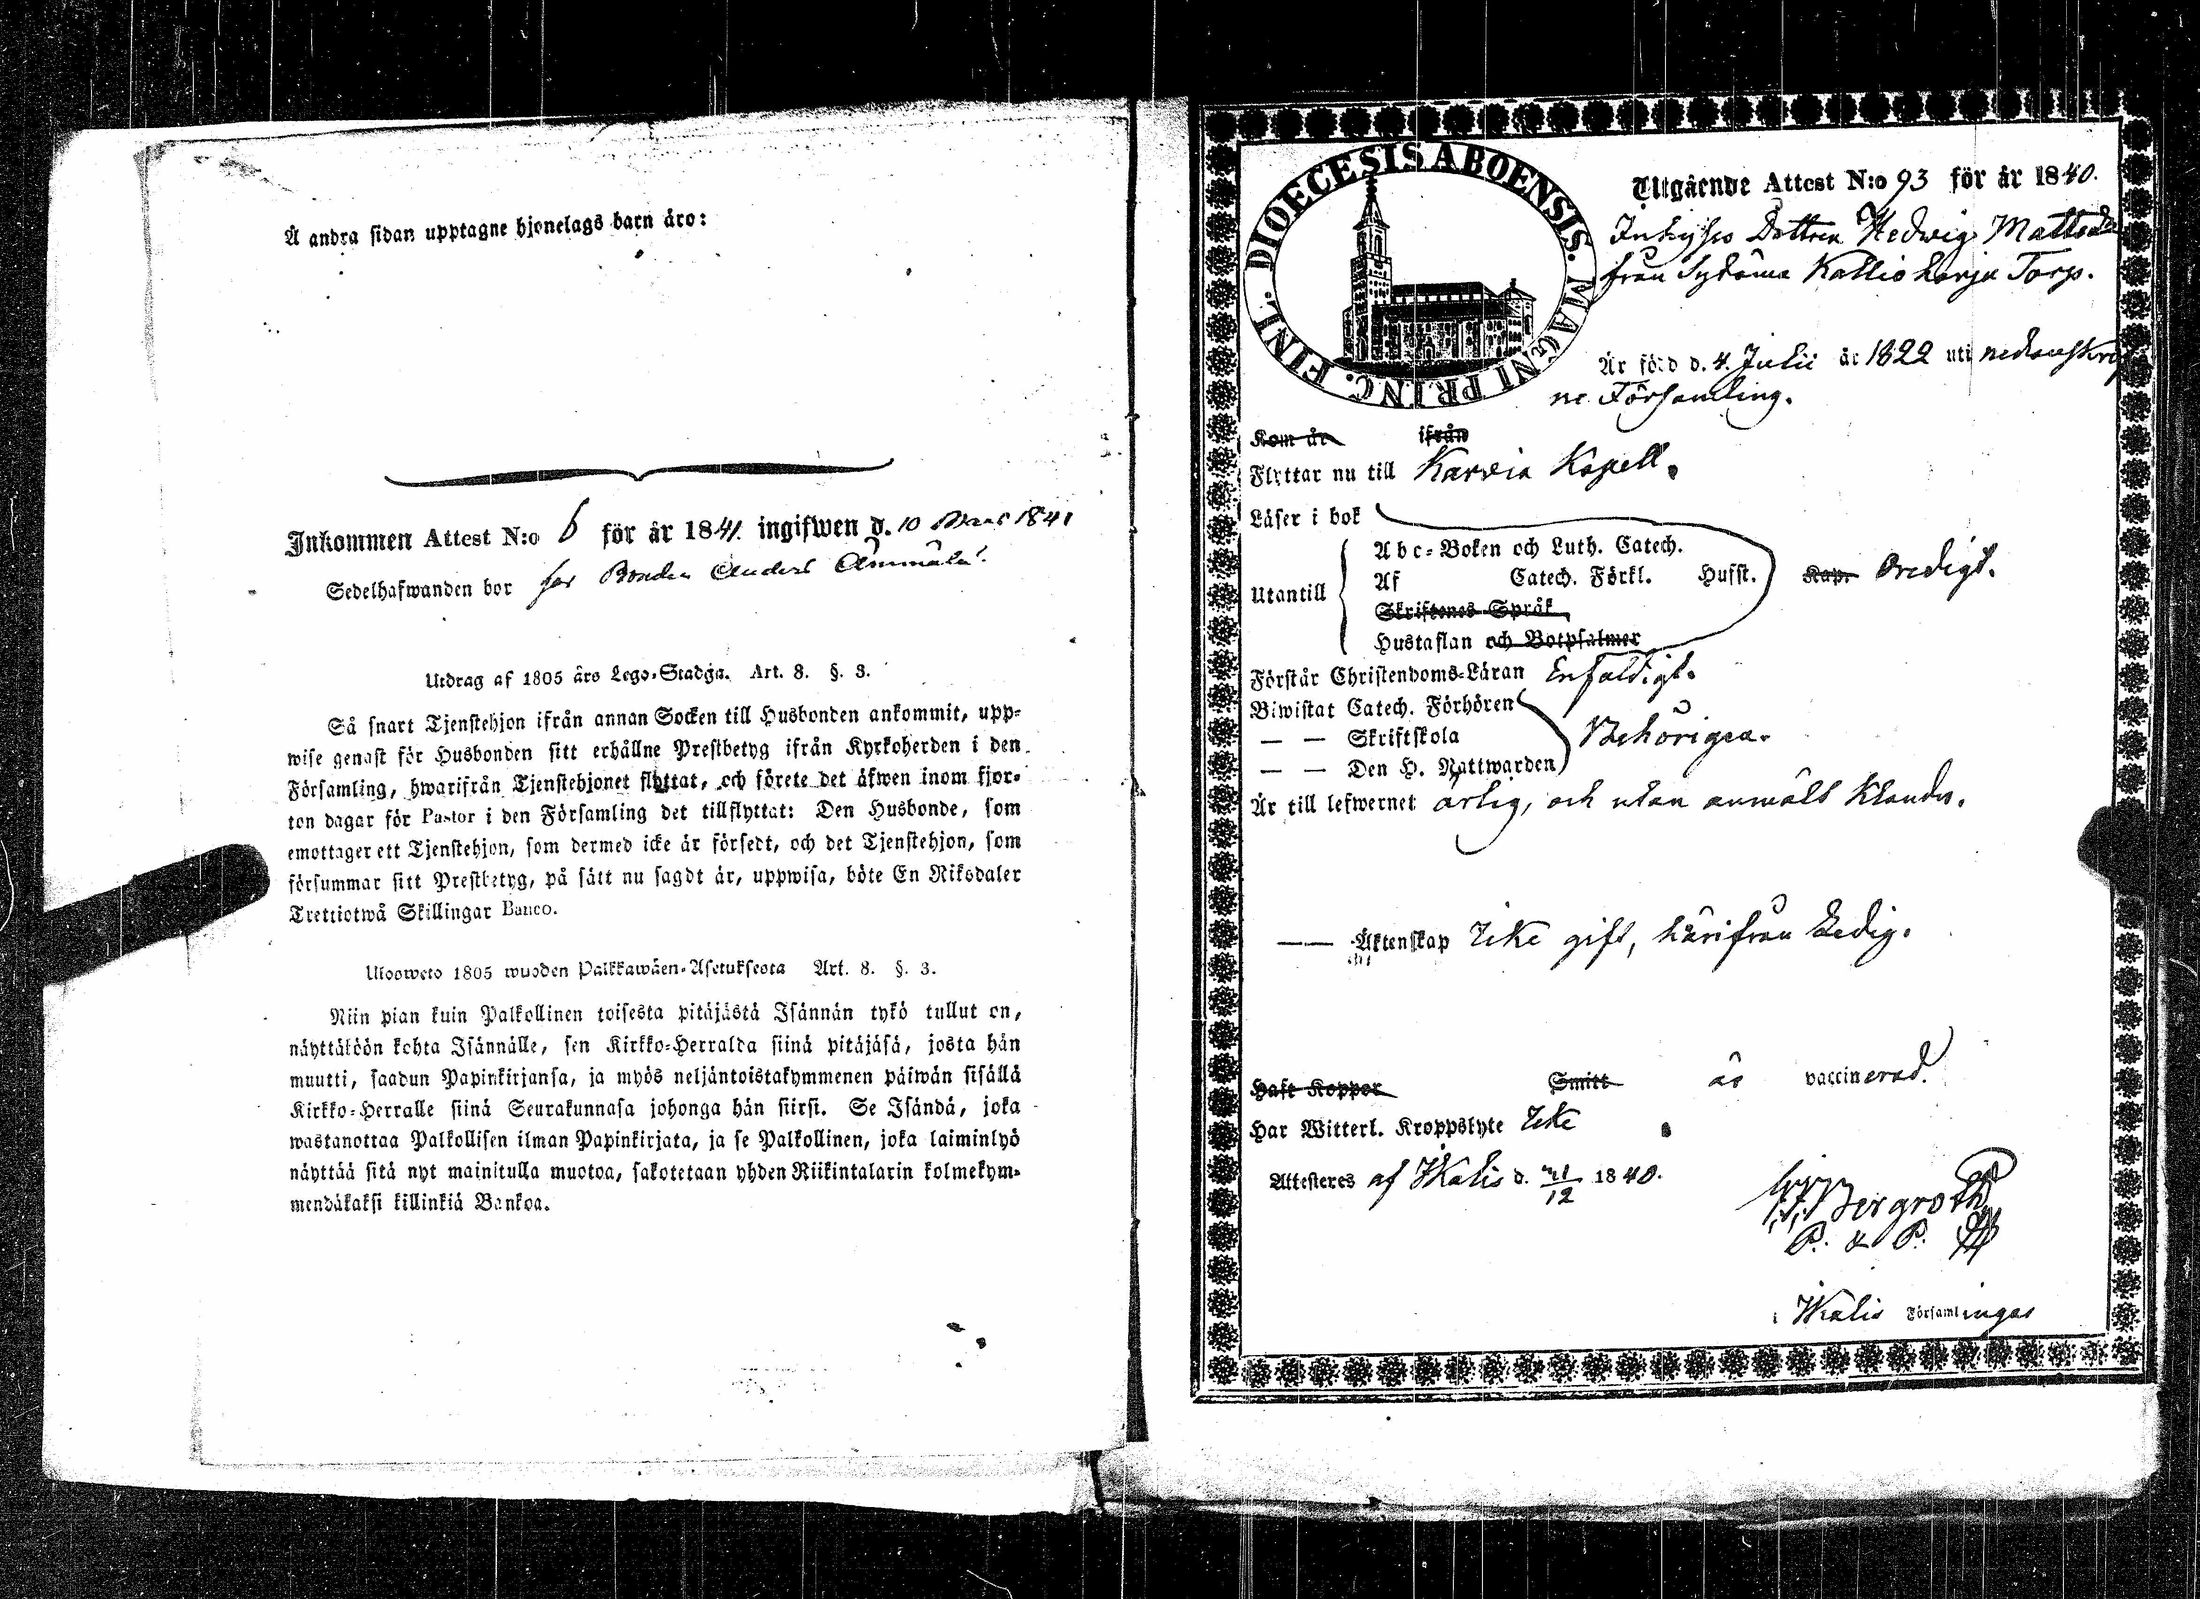 Å andra sidan upptagne hjonelags barn äro:
Inkommen Attest N:o 6 för år 1841. ingifwen d. 10 Mars 1841
Sedelhafwanden bor hos Bonden Anders Ämmälä.
Utdrag af 1805 års Lego-Stadga. Art. 8. §. 3.
Så snart Tjenstehjon ifrån annan Socken till Husbonden ankommit, upp-
wise genast för Husbonden sitt erhållne Prestbetyg ifrån Kyrkoherden i den
Församling, hwarifrån Tjenstehjonet flyttat, och förete det äfwen inom fjor-
ton dagar för Pastor i den Församling det tillflyttat: Den Husbonde, som
emottager ett Tjenstehjon, som dermed icke är försedt, och det Tjenstehjon, som
försummar sitt Prestbetyg, på sätt nu sagdt är, uppwisa, böte En Riksdaler
Trettiotwå Skillingar Banco.
Ulosweto 1805 wuoden Palkkawäen-Asetuksesta Art. 8. §. 3.
Niin pian kuin Palkollinen toisesta pitäjästä Isännän tykö tullut on,
näyttäköön kohta Isännälle, sen Kirkko-Herralda siinä pitäjäsä, josta hän
muutti, saadun Papinkirjansa, ja myös neljäntoistakymmenen päiwän sisällä
Kirkko-Herralle siinä Seurakunnasa johonga hän siirsi. Se Isändä, joka
wastanottaa Palkollisen ilman Papinkirjata, ja se Palkollinen, joka laiminlyö
näyttää sitä nyt mainitulla muotoa, sakotetaan yhden Riikintalarin kolmekym-
mendäkaksi killinkiä Bankoa.
DIOECESIS ABOENSIS. MAGNI PRINC. FINL.
Utgående Attest N:o 93 för år 1840.
Inhyses Dottren Hedwig Mattsdr
från Sydänmaa Kallioharju Torp.
Är född d. 4. Julii år 1822 uti nedanskrif
ne Församling.
Kom år ifrån
Flyttar nu till Karvia Kapell.
Läser i bok
Utantill
Abc-Boken och Luth. Catech.
Af Catech. Förkl. Husst. Kap. Oredigt.
Skriftenes Språk
Hustaflan och Botpsalmer
Förstår Christendoms-Läran Enfaldigt.
Biwistat Catech. Förhören
— — Skriftskola Behörigen.
— — Den H. Nattwarden
Är till lefwernet ärlig, och utan anmält klander.
—— Äktenskap Icke gift, härifrån Ledig.
Haft Koppor Smitt är vaccinerad.
Har Witterl. Kroppslyte Icke
Attesteres af Ikalis d. 21/12 1840.
Bergroth
P. & P.
i Ikalis Församlingar